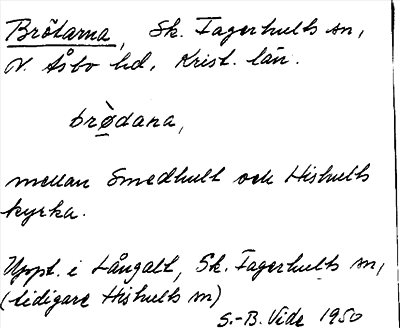 Brötarna, Sk. Fagerhults sn,
N. Åsbo hd, Krist. län.
brø̀dana,
mellan Smedhult och Hishults
kyrka.
Uppt. i Långalt, Sk. Fagerhults sn,
(tidigare Hishults sn)
S.-B. Vide 1950